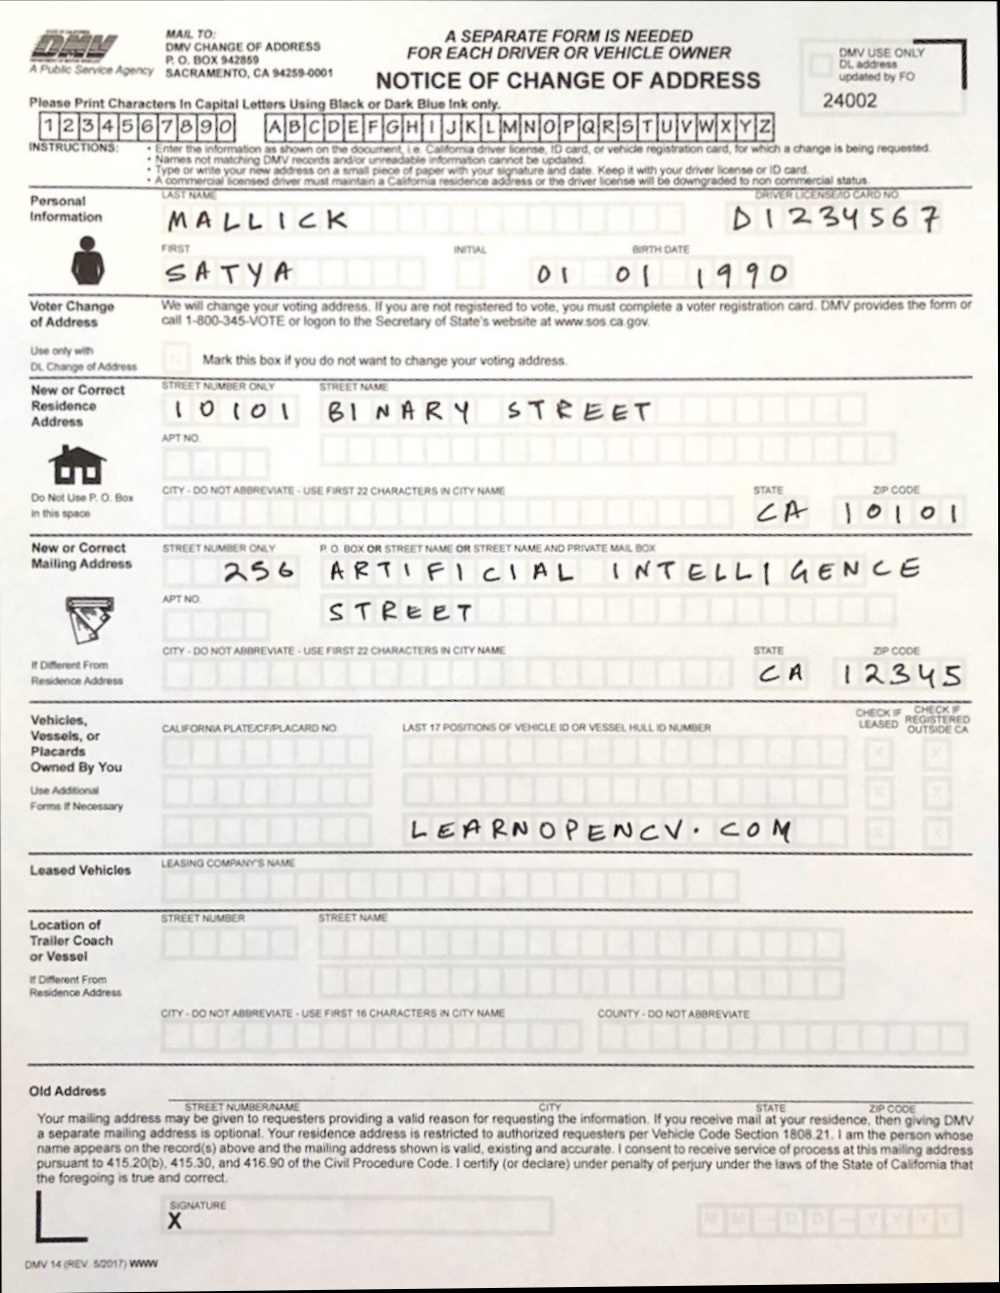 STATE OF CALIFORNIA
DMV
A Public Service Agency
MAIL TO:
DMV CHANGE OF ADDRESS
P. O. BOX 942859
SACRAMENTO, CA 94259-0001
A SEPARATE FORM IS NEEDED
FOR EACH DRIVER OR VEHICLE OWNER
NOTICE OF CHANGE OF ADDRESS
DMV USE ONLY
DL address
updated by FO
24002
Please Print Characters In Capital Letters Using Black or Dark Blue Ink only.
1 2 3 4 5 6 7 8 9 0 A B C D E F G H I J K L M N O P Q R S T U V W X Y Z
INSTRUCTIONS: • Enter the information as shown on the document, i.e. California driver license, ID card, or vehicle registration card, for which a change is being requested.
• Names not matching DMV records and/or unreadable information cannot be updated.
• Type or write your new address on a small piece of paper with your signature and date. Keep it with your driver license or ID card.
• A commercial licensed driver must maintain a California residence address or the driver license will be downgraded to non commercial status.
Personal
Information
LAST NAME DRIVER LICENSE/ID CARD NO.
MALLICK D1234567
FIRST INITIAL BIRTH DATE
SATYA 01 01 1990
Voter Change
of Address
We will change your voting address. If you are not registered to vote, you must complete a voter registration card. DMV provides the form or
call 1-800-345-VOTE or logon to the Secretary of State's website at www.sos.ca.gov.
Use only with
DL Change of Address
Mark this box if you do not want to change your voting address.
New or Correct
Residence
Address
STREET NUMBER ONLY STREET NAME
10101 BINARY STREET
APT NO.
Do Not Use P. O. Box
in this space
CITY - DO NOT ABBREVIATE - USE FIRST 22 CHARACTERS IN CITY NAME STATE ZIP CODE
CA 10101
New or Correct
Mailing Address
STREET NUMBER ONLY P. O. BOX OR STREET NAME OR STREET NAME AND PRIVATE MAIL BOX
256 ARTIFICIAL INTELLIGENCE
APT NO.
STREET
If Different From
Residence Address
CITY - DO NOT ABBREVIATE - USE FIRST 22 CHARACTERS IN CITY NAME STATE ZIP CODE
CA 12345
Vehicles,
Vessels, or
Placards
Owned By You
Use Additional
Forms If Necessary
CALIFORNIA PLATE/CF/PLACARD NO. LAST 17 POSITIONS OF VEHICLE ID OR VESSEL HULL ID NUMBER
CHECK IF
LEASED
CHECK IF
REGISTERED
OUTSIDE CA
X X
X X
LEARNOPENCV.COM X X
Leased Vehicles
LEASING COMPANY'S NAME
Location of
Trailer Coach
or Vessel
If Different From
Residence Address
STREET NUMBER STREET NAME
CITY - DO NOT ABBREVIATE - USE FIRST 16 CHARACTERS IN CITY NAME COUNTY - DO NOT ABBREVIATE
Old Address
STREET NUMBER/NAME CITY STATE ZIP CODE
Your mailing address may be given to requesters providing a valid reason for requesting the information. If you receive mail at your residence, then giving DMV
a separate mailing address is optional. Your residence address is restricted to authorized requesters per Vehicle Code Section 1808.21. I am the person whose
name appears on the record(s) above and the mailing address shown is valid, existing and accurate. I consent to receive service of process at this mailing address
pursuant to 415.20(b), 415.30, and 416.90 of the Civil Procedure Code. I certify (or declare) under penalty of perjury under the laws of the State of California that
the foregoing is true and correct.
SIGNATURE
X
M M - D D - Y Y Y Y
DMV 14 (REV. 5/2017) WWW